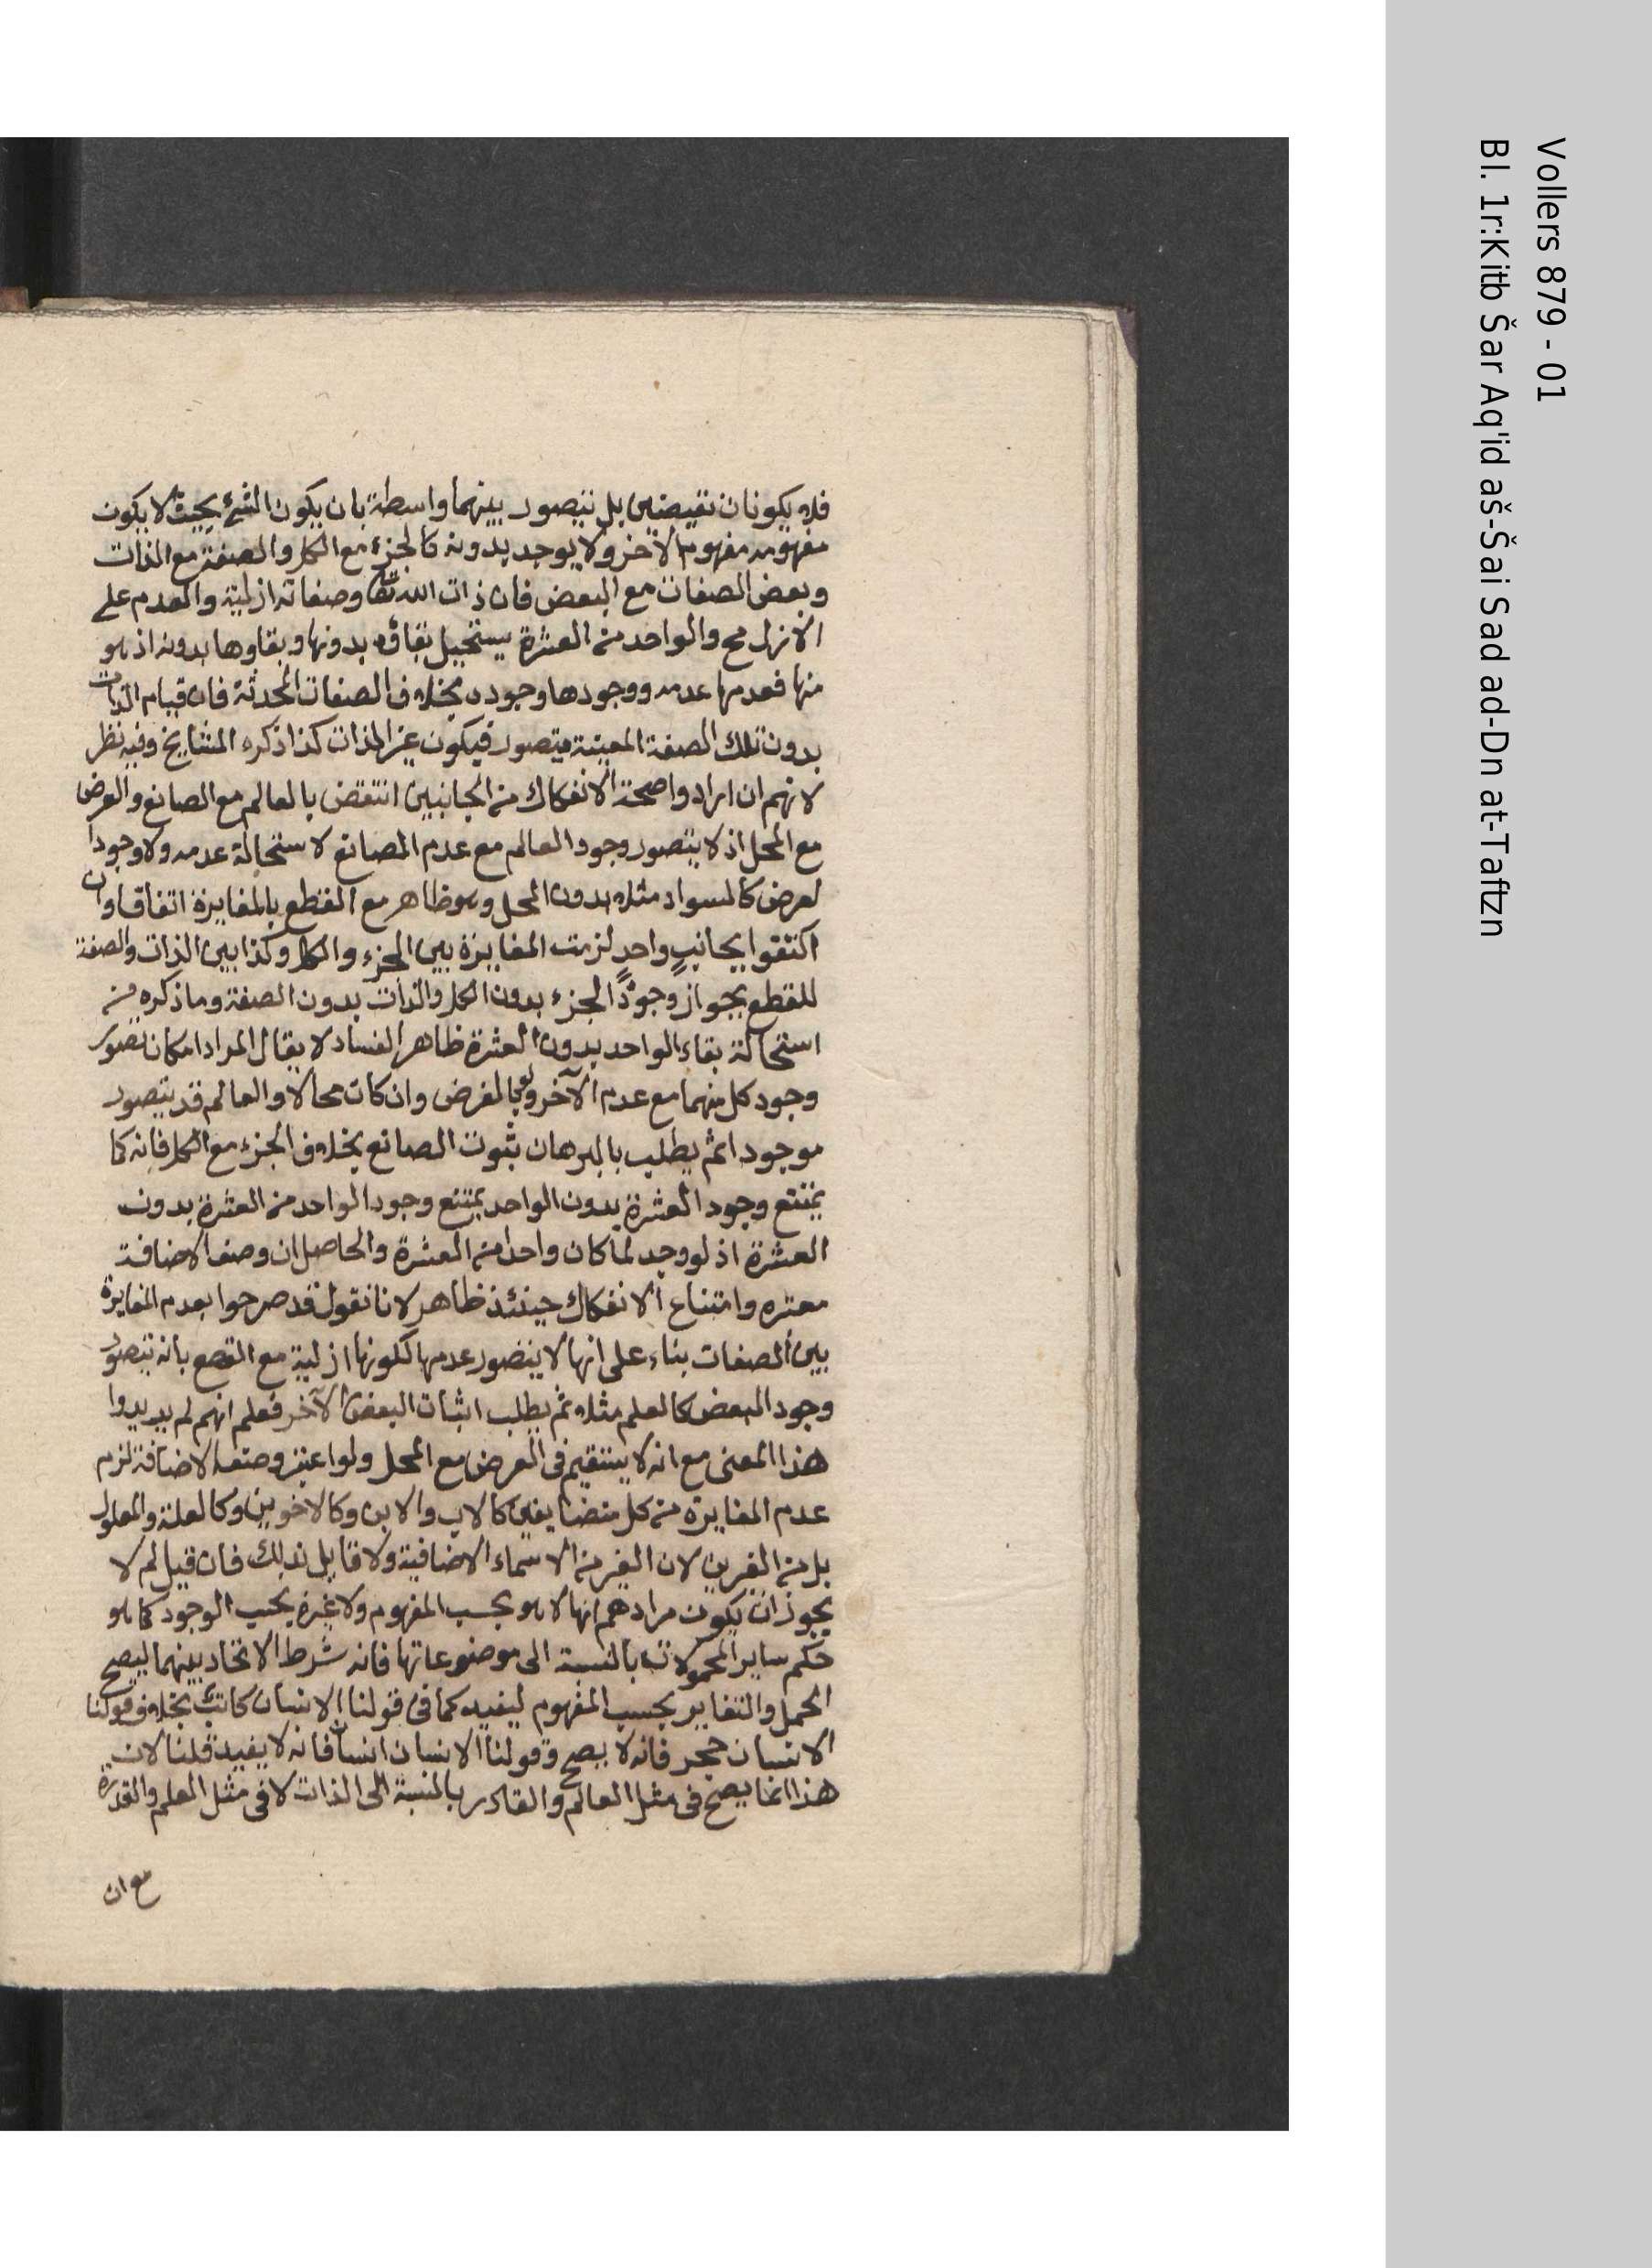 فلا يكونان نقيضين بل يتصور بينهما واسطة بان يكون الشئ بحيث لا يكون
مفهومه مفهوم الآخر ولا يوجد بدونه كالجزء مع الكل والصفة مع الذات
وبعض الصفات مع البعض فان ذات الله تعا وصفاته ازلية والعدم على
الازل مح والواحد من العشرة يستحيل بقاؤه بدونها وبقاوها بدونه اذ هو
منها فعدمها عدمه ووجودها وجوده بخلاف الصفات المحدثة فان قيام الذات
بدون تلك الصفة المعينة متصور فيكون غير الذات كذا ذكره المشايخ وفيه نظر
لانهم ان ارادوا صحة الانفكاك من الجانبين انتقض بالعالم مع الصانع والعرض
مع المحل اذ لا يتصور وجود العالم مع عدم الصانع لاستحالة عدمه ولا وجود ا
لعرض كالسواد مثلا بدون المحل وهو ظاهر مع القطع بالمغايرة اتفاقا وان
اكتفوا بجانبٍ واحدٍ لزمت المغايرة بين الجزء والكل وكذا بين الذات والصفة
للقطع بجواز وجود الجزء بدون الكل والذات بدون الصفة وما ذكره من
استحالة بقاء الواحد بدون العشرة ظاهر الفساد لا يقال المراد امكان تصور
وجود كل منهما مع عدم الآخر ولو بالفرض وان كان محالا والعالم قد يتصور
موجودا ثم يطلب بالبرهان ثبوت الصانع بخلاف الجزء مع الكل فانه كما
يمتنع وجود العشرة بدون الواحد يمتنع وجود الواحد من العشرة بدون
العشرة اذ لو وجد لما كان واحدا من العشرة والحاصل ان وصف الاضافة
معتبره وامتناع الانفكاك حينئذ ظاهر لانا نقول قد صرحوا بعدم المغايرة
بين الصفات بناء على انها لا يتصور عدمها لكونها ازلية مع القطع بانه يتصور
وجود البعض كالعلم مثلا ثم يطلب اثبات البعض الآخر فعلم انهم لم يريدوا
هذا المعنى مع انه لا يستقيم في العرض مع المحل ولو اعتبر وصف الاضافة لزم
عدم المغايرة من كل متضايفين كالاب والابن وكالاخوين وكالعلة والمعلول
بل من الغيرين لان الغير من الاسماء الاضافية ولا قايل بذلك فان قيل لم لا
يجوز ان يكون مرادهم انها لا هو بحسب المفهوم ولا غيره بحسب الوجود كما هو
حكم ساير المحمولات بالنسبة الى موضوعاتها فانه شرط الاتحاد بينهما ليصح
الحمل والتغاير بحسب المفهوم ليفيد كما في قولنا الانسان كاتب بخلاف قولنا
الانسان حجر فانه لا يصح وقولنا الانسان انسان فانه لا يفيد قلنا لان
هذا انما يصح في مثل العالم والقادر بالنسبة الى الذات لا في مثل العلم والقدرة
مع ان
Vollers 879 - 01
Bl. 1r:Kitb Šar Aq'id aš-Šai Sad ad-Dn at-Taftzn